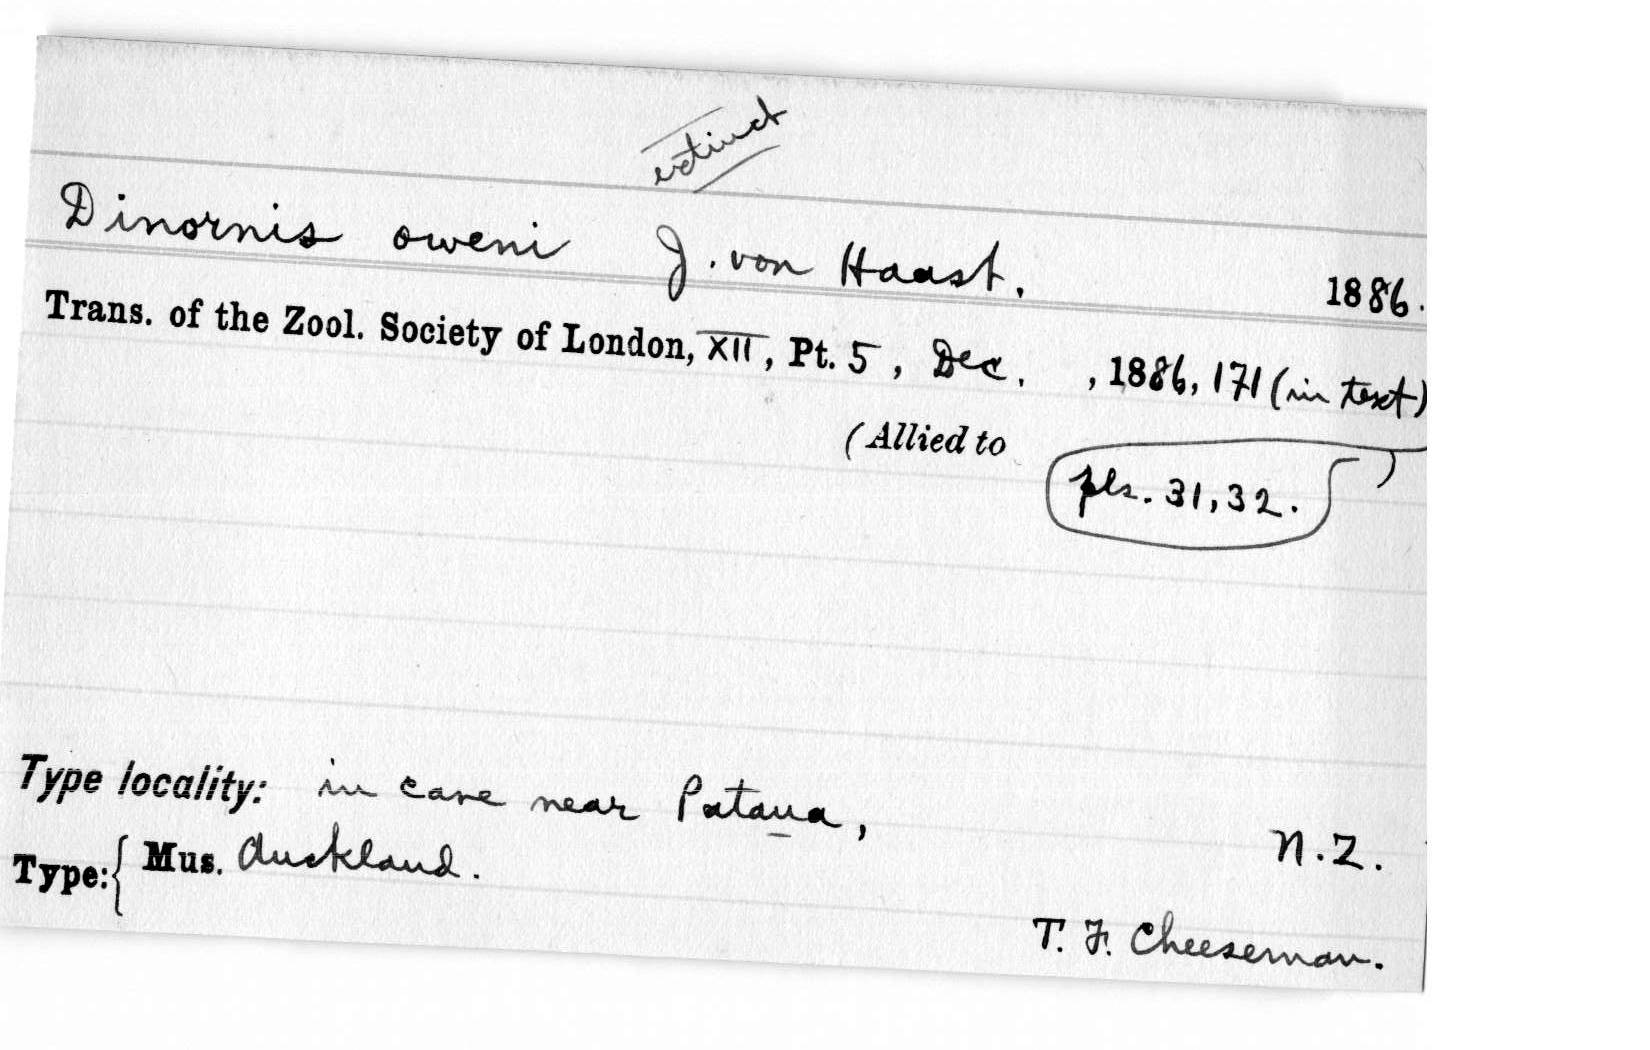 extinct
Dinornis oweni J. von Haast. 1886.
Trans. of the Zool. Society of London, XII, Pt. 5, Dec. , 1886, 171 (in text)
(Allied to )
pls. 31, 32.
Type locality: in cave near Pataua, N.Z.
Type: { Mus. Auckland.
T. F. Cheeseman.